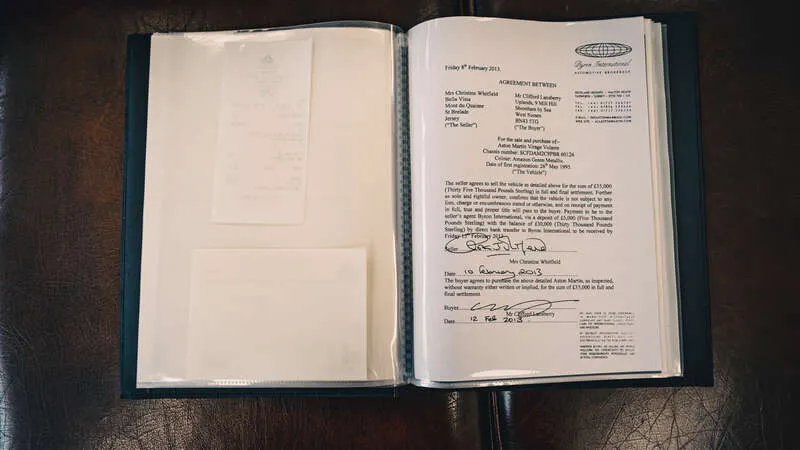 Friday 8th February 2013.
Byron International
AUTOMOTIVE BROKERS
AGREEMENT BETWEEN
Mrs Christine Whitfield
Bella Vista
Mont du Quaisne
St Brelade
Jersey
("The Seller")
Mr Clifford Lansberry
Uplands, 9 Mill Hill
Shoreham by Sea
West Sussex
BN43 5TG
("The Buyer")
For the sale and purchase of:-
Aston Martin Virage Volante
Chassis number: SCFDAM2C9PBR 60126
Colour: Amazon Green Metallic.
Date of first registration: 26th May 1995.
("The Vehicle")
The seller agrees to sell the vehicle as detailed above for the sum of £35,000
(Thirty Five Thousand Pounds Sterling) in full and final settlement. Further
as sole and rightful owner, confirms that the vehicle is not subject to any
lien, charge or encumbrance stated or otherwise, and on receipt of payment
in full, true and proper title will pass to the buyer. Payment to be to the
seller's agent Byron International, via a deposit of £5,000 (Five Thousand
Pounds Sterling) with the balance of £30,000 (Thirty Thousand Pounds
Sterling) by direct bank transfer to Byron International to be received by
Friday 15th February 2013.
Seller
Mrs Christine Whitfield
Date 10 February 2013
The buyer agrees to purchase the above detailed Aston Martin, as inspected,
without warranty either written or implied, for the sum of £35,000 in full and
final settlement.
Buyer
Mr Clifford Lansberry
Date 12 Feb 2013